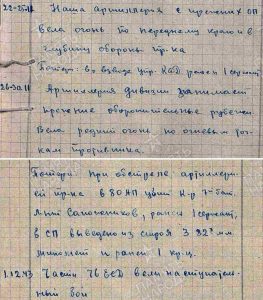 22-25.11 Наша артиллерия с прежних ОП
вела огонь по переднему краю и в
глубину обороны пр-ка
Потери: во взводе упр. КАД ранен 1 сержант
26-30.11 Артиллерия дивизии занимает
прежние оборонительные рубежи
Вела редкий огонь по огневым точ-
кам противника.
Потери: При обстреле артиллери-
ей пр-ка в 80 АП убит к-р 7-бат.
л-нт Сапожников, ранен 1 сержант,
в СП выведено из строя 3 82 мм
миномет и ранен 1 кр-ц.
1.12.43 Части 76 вели наступатель-
ный бой